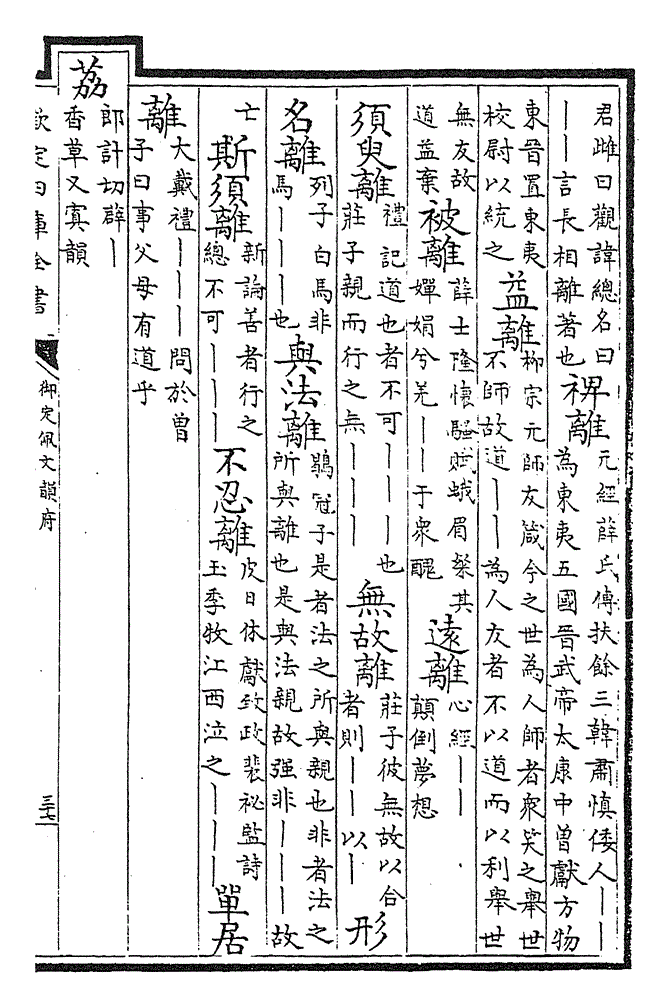 君雎曰觀諱總名曰
——言長相離著也
裨離
元經薛氏傳扶餘三韓肅慎倭人——
為東夷五國晉武帝太康中曽獻方物
東晉置東夷
校尉以統之
益離
柳宗元師友箴今之世為人師者衆笑之舉世
不師故道——為人友者不以道而以利舉世
無友故
道益棄
被離
薛士隆懷騷賦蛾眉粲其
嬋娟兮羌——于衆醜
遠離
心經——
顛倒夢想
須臾離
禮記道也者不可———也
莊子親而行之無———
無故離
莊子彼無故以合
者則——以—
形
名離
列子白馬非
馬———也
與法離
鶡冠子是者法之所與親也非者法之
所與離也是與法親故强非———故
亡
斯須離
新論善者行之
總不可———
不忍離
皮日休獻致政裴祕監詩
玉季牧江西泣之———
單居
離
大戴禮————問於曽
子曰事父母有道乎
荔
郎計切薜—
香草又寘韻
欽定四庫全書
御定佩文韻府
三七